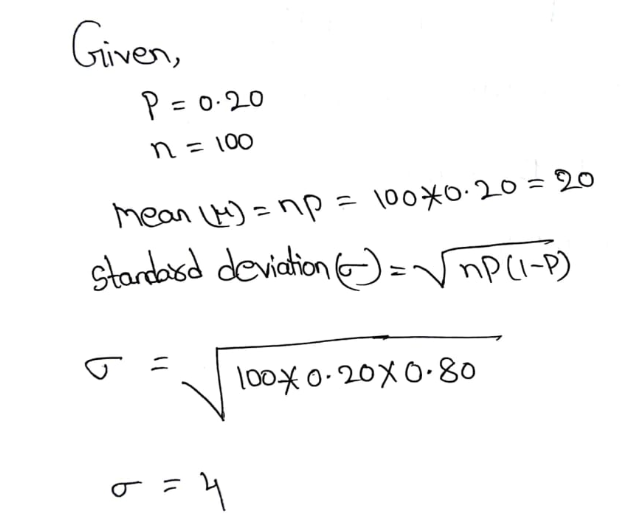 Given,
P = 0.20
n = 100
mean (μ) = np = 100*0.20 = 20
Standard deviation (σ) = √np(1-P)
σ = √100*0.20X0.80
σ = 4